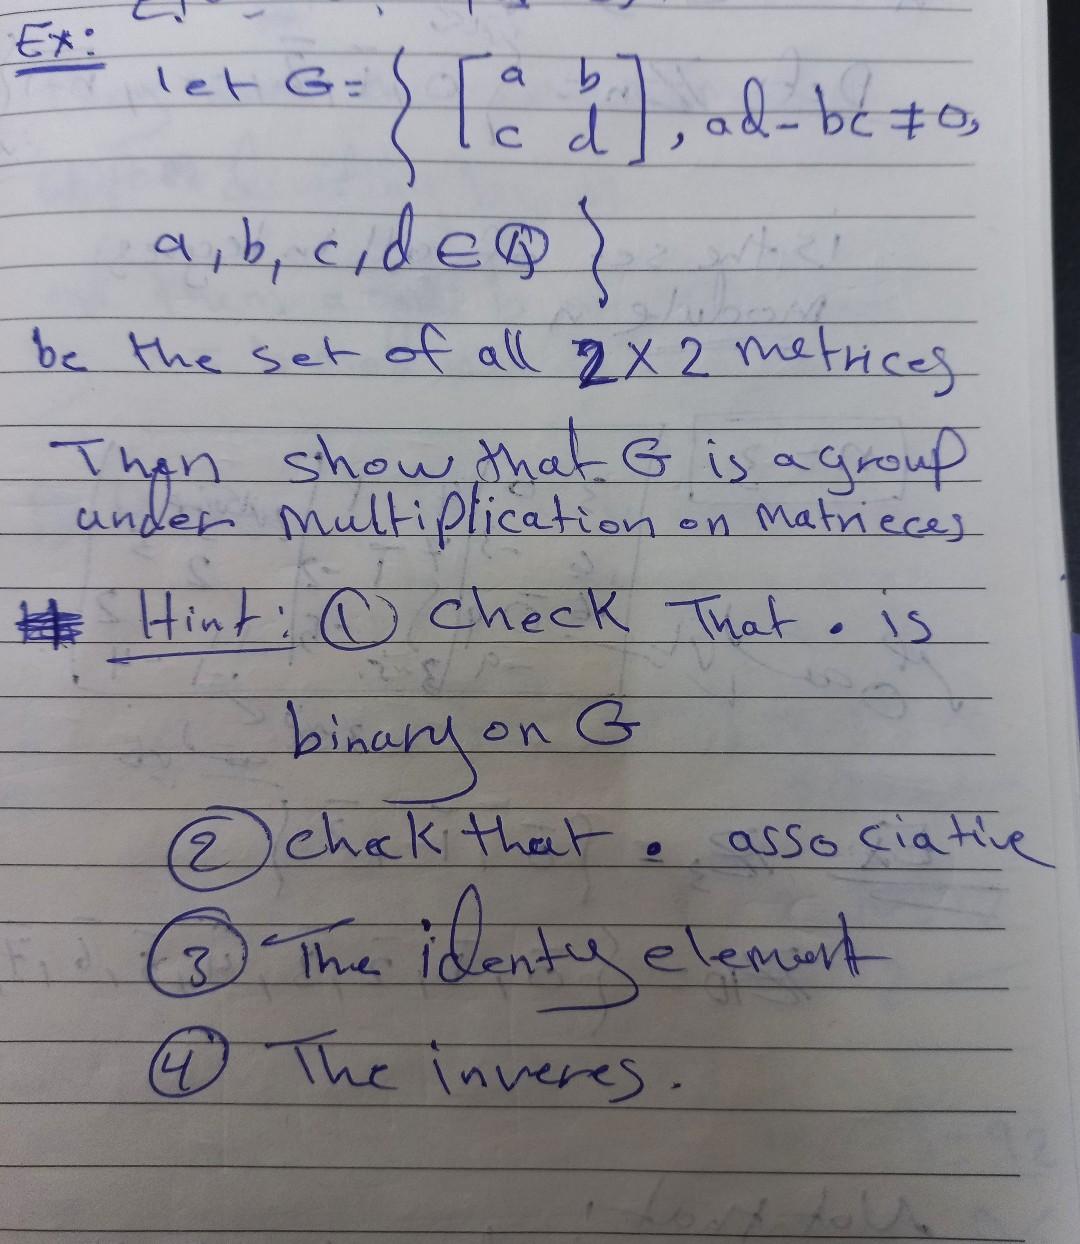 Ex:
let G = { [ a b
c d ] , ad - bc ≠ 0,
a, b, c, d ∈ Q }
be the set of all 2 x 2 metrices
Then show that G is a group
under multiplication on matrieces
Hint: ① check That • is
binary on G
② check that • associative
③ The identy element
④ The inveres.